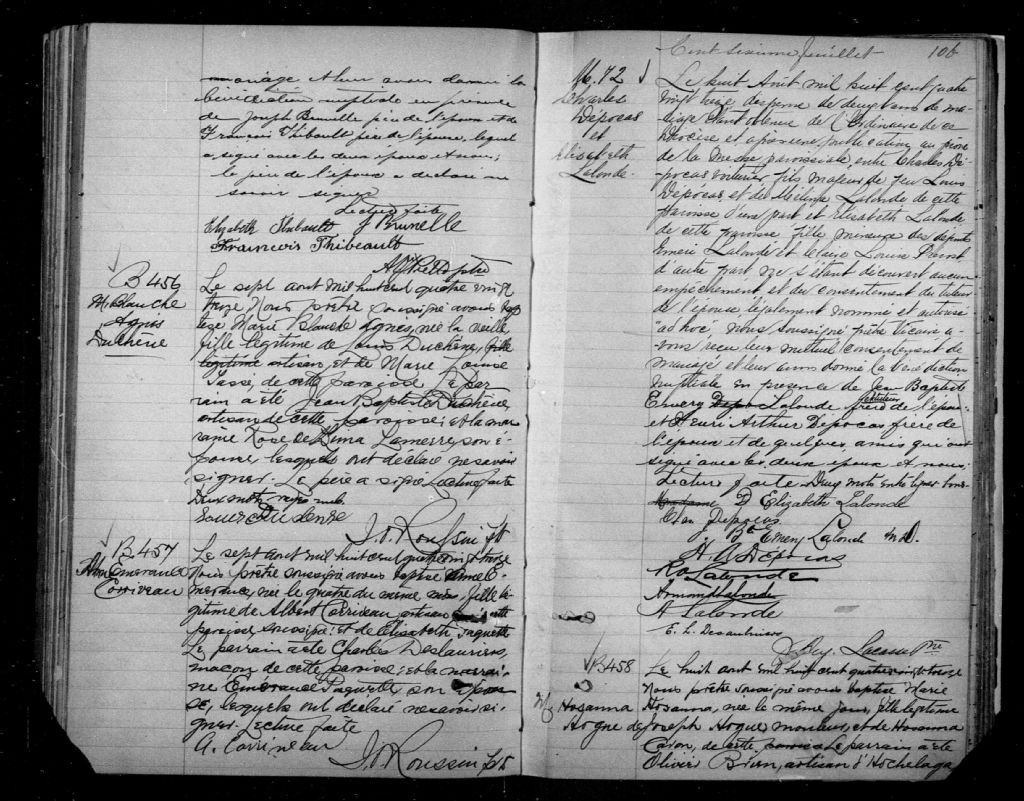 mariage et leur avons donné la
bénédiction nuptiale en présence
de Joseph Brunelle père de l'époux et de
François Thibault père de l'épouse, lequel
a signé avec les deux époux et nous;
le père de l'époux a déclaré ne
savoir signer
Lecture faite
Elizabeth Thibault J Brunelle
Francois Thibeault
ptre
B 456
M. Blanche
Agnès
Duchêne
Le sept aout mil huit cent quatre vingt
treize Nous prêtre soussigné avons bap
tisé Marie Blanche Agnes, née la veille
fille légitime de Louis Duchêne,
artisan et de Marie Louise
de cette paroisse Le par
rain a été Jean Baptiste Duchêne,
artisan de cette paroisse; et la mar
raine Rose de Lima Lamerre, son é-
pouse lesquels ont déclaré ne savoir
signer. Le père a signé Lecture faite
Deux mots rayés nuls
Louis Duchêne
J. O. Roussin ptr
B 457
Emerance
Corriveau
Le sept aout mil huit cent quatre vingt treize
Nous prêtre soussigné avons baptisé E-
merance, née le quatre du même mois, fille lé-
gitime de Albert Corriveau, artisan de cette
paroisse soussigné; et de Elisabeth Paquette
Le parrain a été Charles Deslauriers,
maçon de cette paroisse; et la marrai-
ne Emérance Paquette son épou-
se, lesquels ont déclaré ne savoir si-
gner. Lecture faite
A. Corriveau
J. O. Roussin ptr
Cent sixième feuillet 106
M. 72
Charles
Depocas
et
Elisabeth
Lalonde
Le huit Aout mil huit cent quatre
vingt treize dispense de deux bans de ma-
riage étant obtenue de l'Ordinaire de ce
diocèse et après une publication au prone
de la messe paroissiale entre Charles De-
pocas voiturier fils majeur de feu Louis
Depocas et de Mélina Lalonde de cette
paroisse d'une part et Elisabeth Lalonde
de cette paroisse fille mineure des défunts
Emeri Lalonde et Louise
d'autre part ne s'étant découvert aucun
empêchement et du consentement du tuteur
de l'épouse légalement nommé et autorisé
"ad hoc" nous soussigné prêtre vicaire a-
vons reçu leur mutuel consentement de
mariage et leur avons donné la bénédiction
nuptiale en présence de Jean Baptiste
Emery Lalonde frère de l'épouse
et Henri Arthur Depocas frère de
l'époux et de quelques amis qui ont
signé avec les deux époux et nous.
Lecture faite Deux mots
Elizabeth Lalonde
Chas Depocas
Bte Emery Lalonde M.D.
H. A. Depocas
Lalonde
Armand Lalonde
A Lalonde
E. L. Desautniers
ptre
B 458
Hosanna
Hogue
Le huit aout mil huit cent quatre vingt treize
Nous prêtre soussigné avons baptisé Marie
Hosanna, née le même jour, fille légitime
de Joseph Hogue, mouleur, et de Hosanna
Caron, de cette paroisse Le parrain a été
Olivier Brien, artisan d'Hochelaga